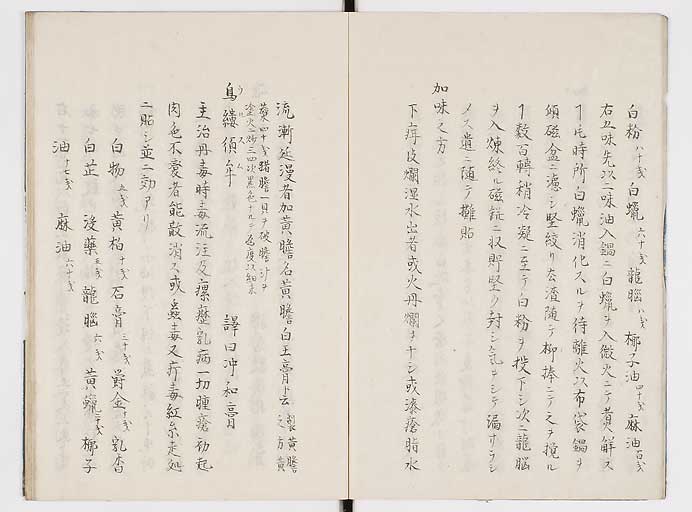 白粉八十戔 白蠟六十戔 龍腦八戔 椰子油四十戔 麻油百戔
右五味先以二味油入鍋ニ白蠟ヲ入微火ニテ煮解ス
ヿ片時所白蠟消化スルヲ待離火以布袋鍋ヲ
傾磁盆ニ濾シ堅絞リ去渣随テ柳捧ニテ之ヲ攪ル
ヿ數百轉稍冷凝ニ至テ白粉ヲ投下シ次ニ龍腦
ヲ入煉終ル磁 ニ収貯堅ク封シ氣ヲシテ漏サラシ
メス 遣ニ随テ攤貼
加味之方
下疳皮爛湿水出者或火丹爛ヲナシ或漆瘡脂水
流漸延漫者加黄膽名黄膽白玉膏ト云 製黄膽之方黄
蘗四十戔 膽一具ヲ破膽汁ヲ
塗火ニ炙三四次黒色ナルニテ 度以細末
烏縷須牟 ウルスム 譯曰沖和膏
主治丹毒時毒流注及瘰癧乳病一切腫瘡初起
肉色不変者能散消ス或蟲毒又疔毒紅糸走処
ニ貼シ並ニ効アリ
白物五戔 黄柏十戔 石膏三十戔 欝金十戔 乳香
白芷 没藥五戔 龍腦六戔 黄蠟三十戔 椰子
油十七戔 麻油六十戔